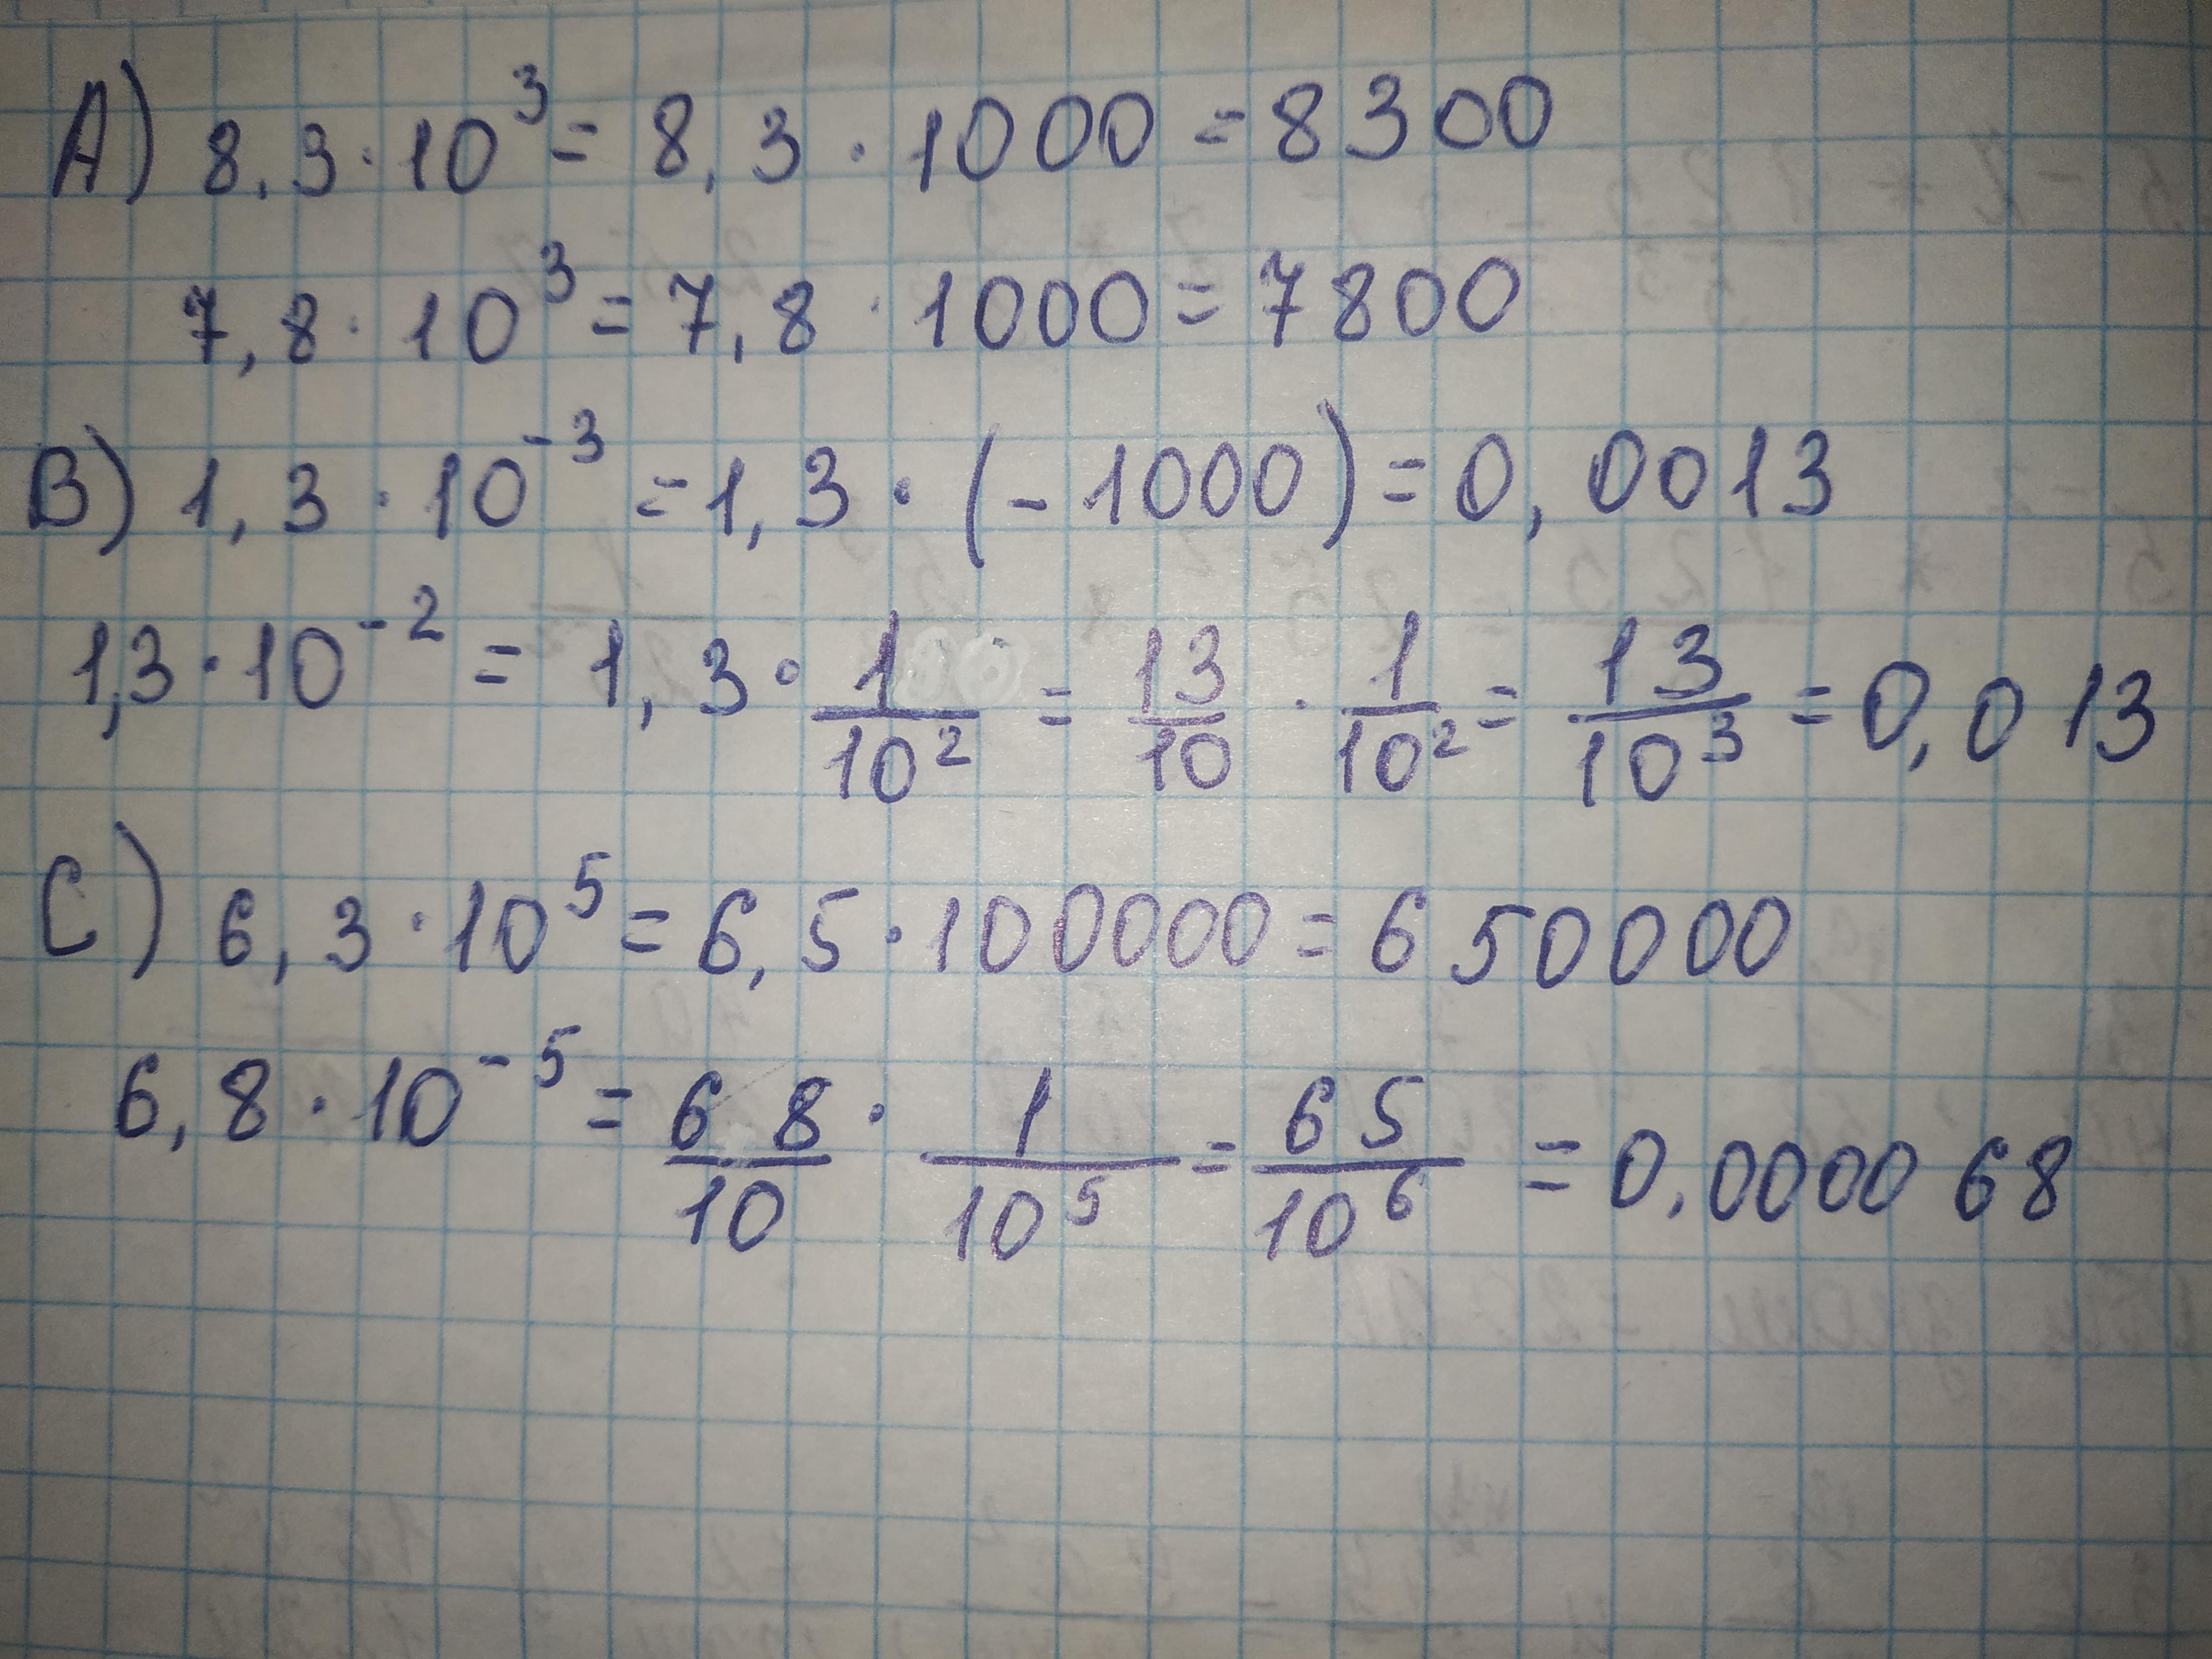 A) 8,3·10³ = 8,3·1000 = 8300
7,8·10³ = 7,8·1000 = 7800
B) 1,3·10⁻³ = 1,3·(-1000) = 0,0013
1,3·10⁻² = 1,3·1/10² = 13/10·1/10² = 13/10³ = 0,013
C) 6,3·10⁵ = 6,5·100000 = 650000
6,8·10⁻⁵ = 68/10·1/10⁵ = 65/10⁶ = 0,000068